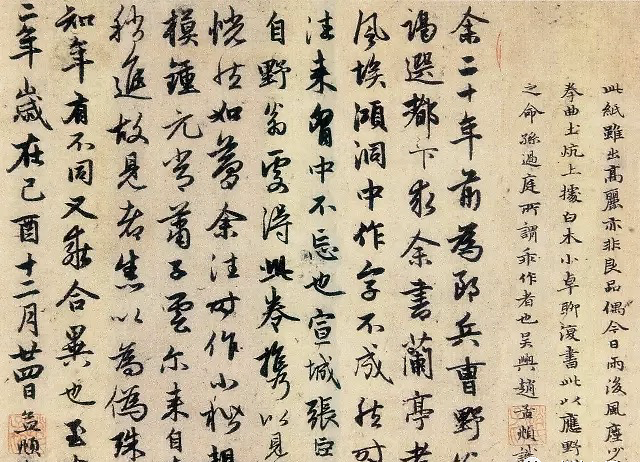 此紙雖出高麗亦非良品偶今日雨後風塵少
拳曲土炕上據白木小卓聊復書此以應野
之命孫過庭所謂乖作者也吳興趙孟頫識
余二十年前為郎兵曹野
謁選都下求余書蘭亭考
風埃澒洞中作字不成然时
往来胷中不忘也宣城張臣
自野翁䖏得此卷携以見
恍然如夢余往时作小楷規
模鍾元常蕭子雲尔来自
稍進故見者以為偽殊
知年有不同又乖合異也至
二年歲在己酉十二月廿四日孟頫